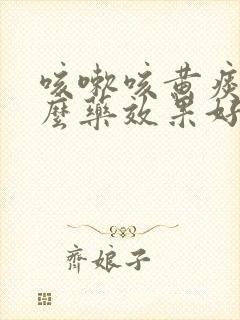 咳嗽咳黄痰
麼藥效果好
齊娘子